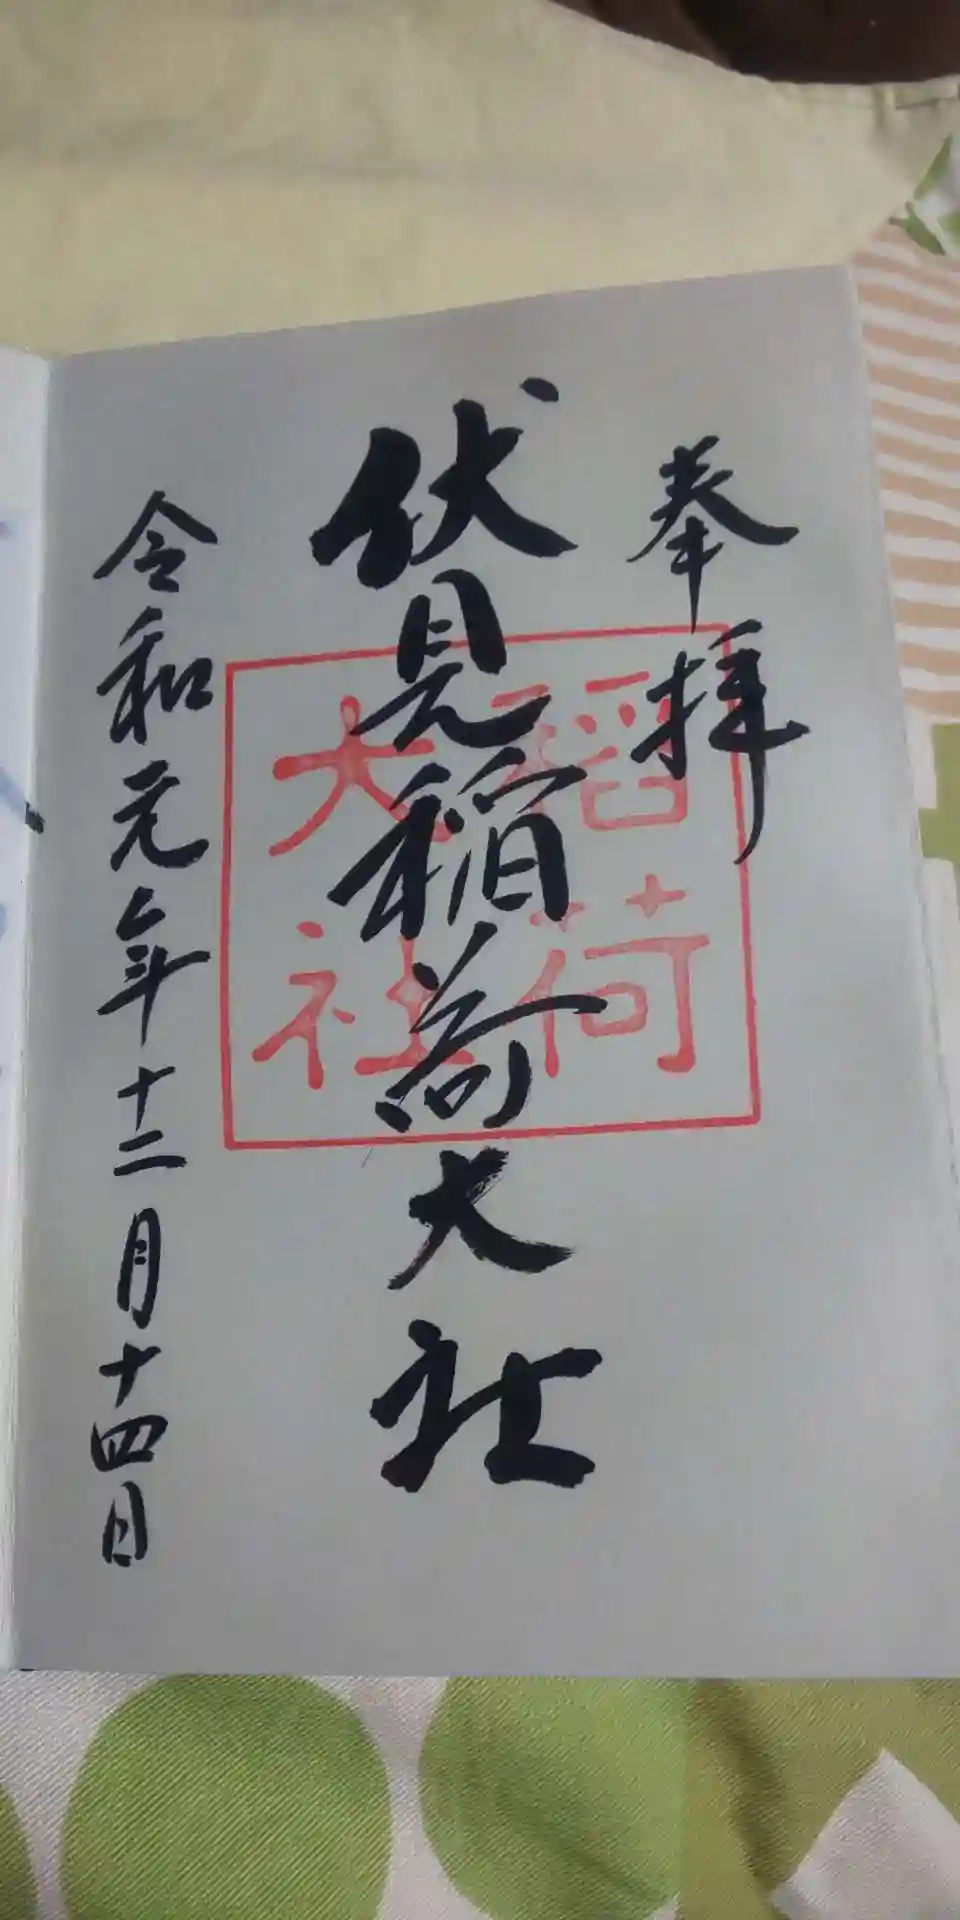 奉拝
伏見稲荷大社
稲荷
大社
令和元年十二月十四日